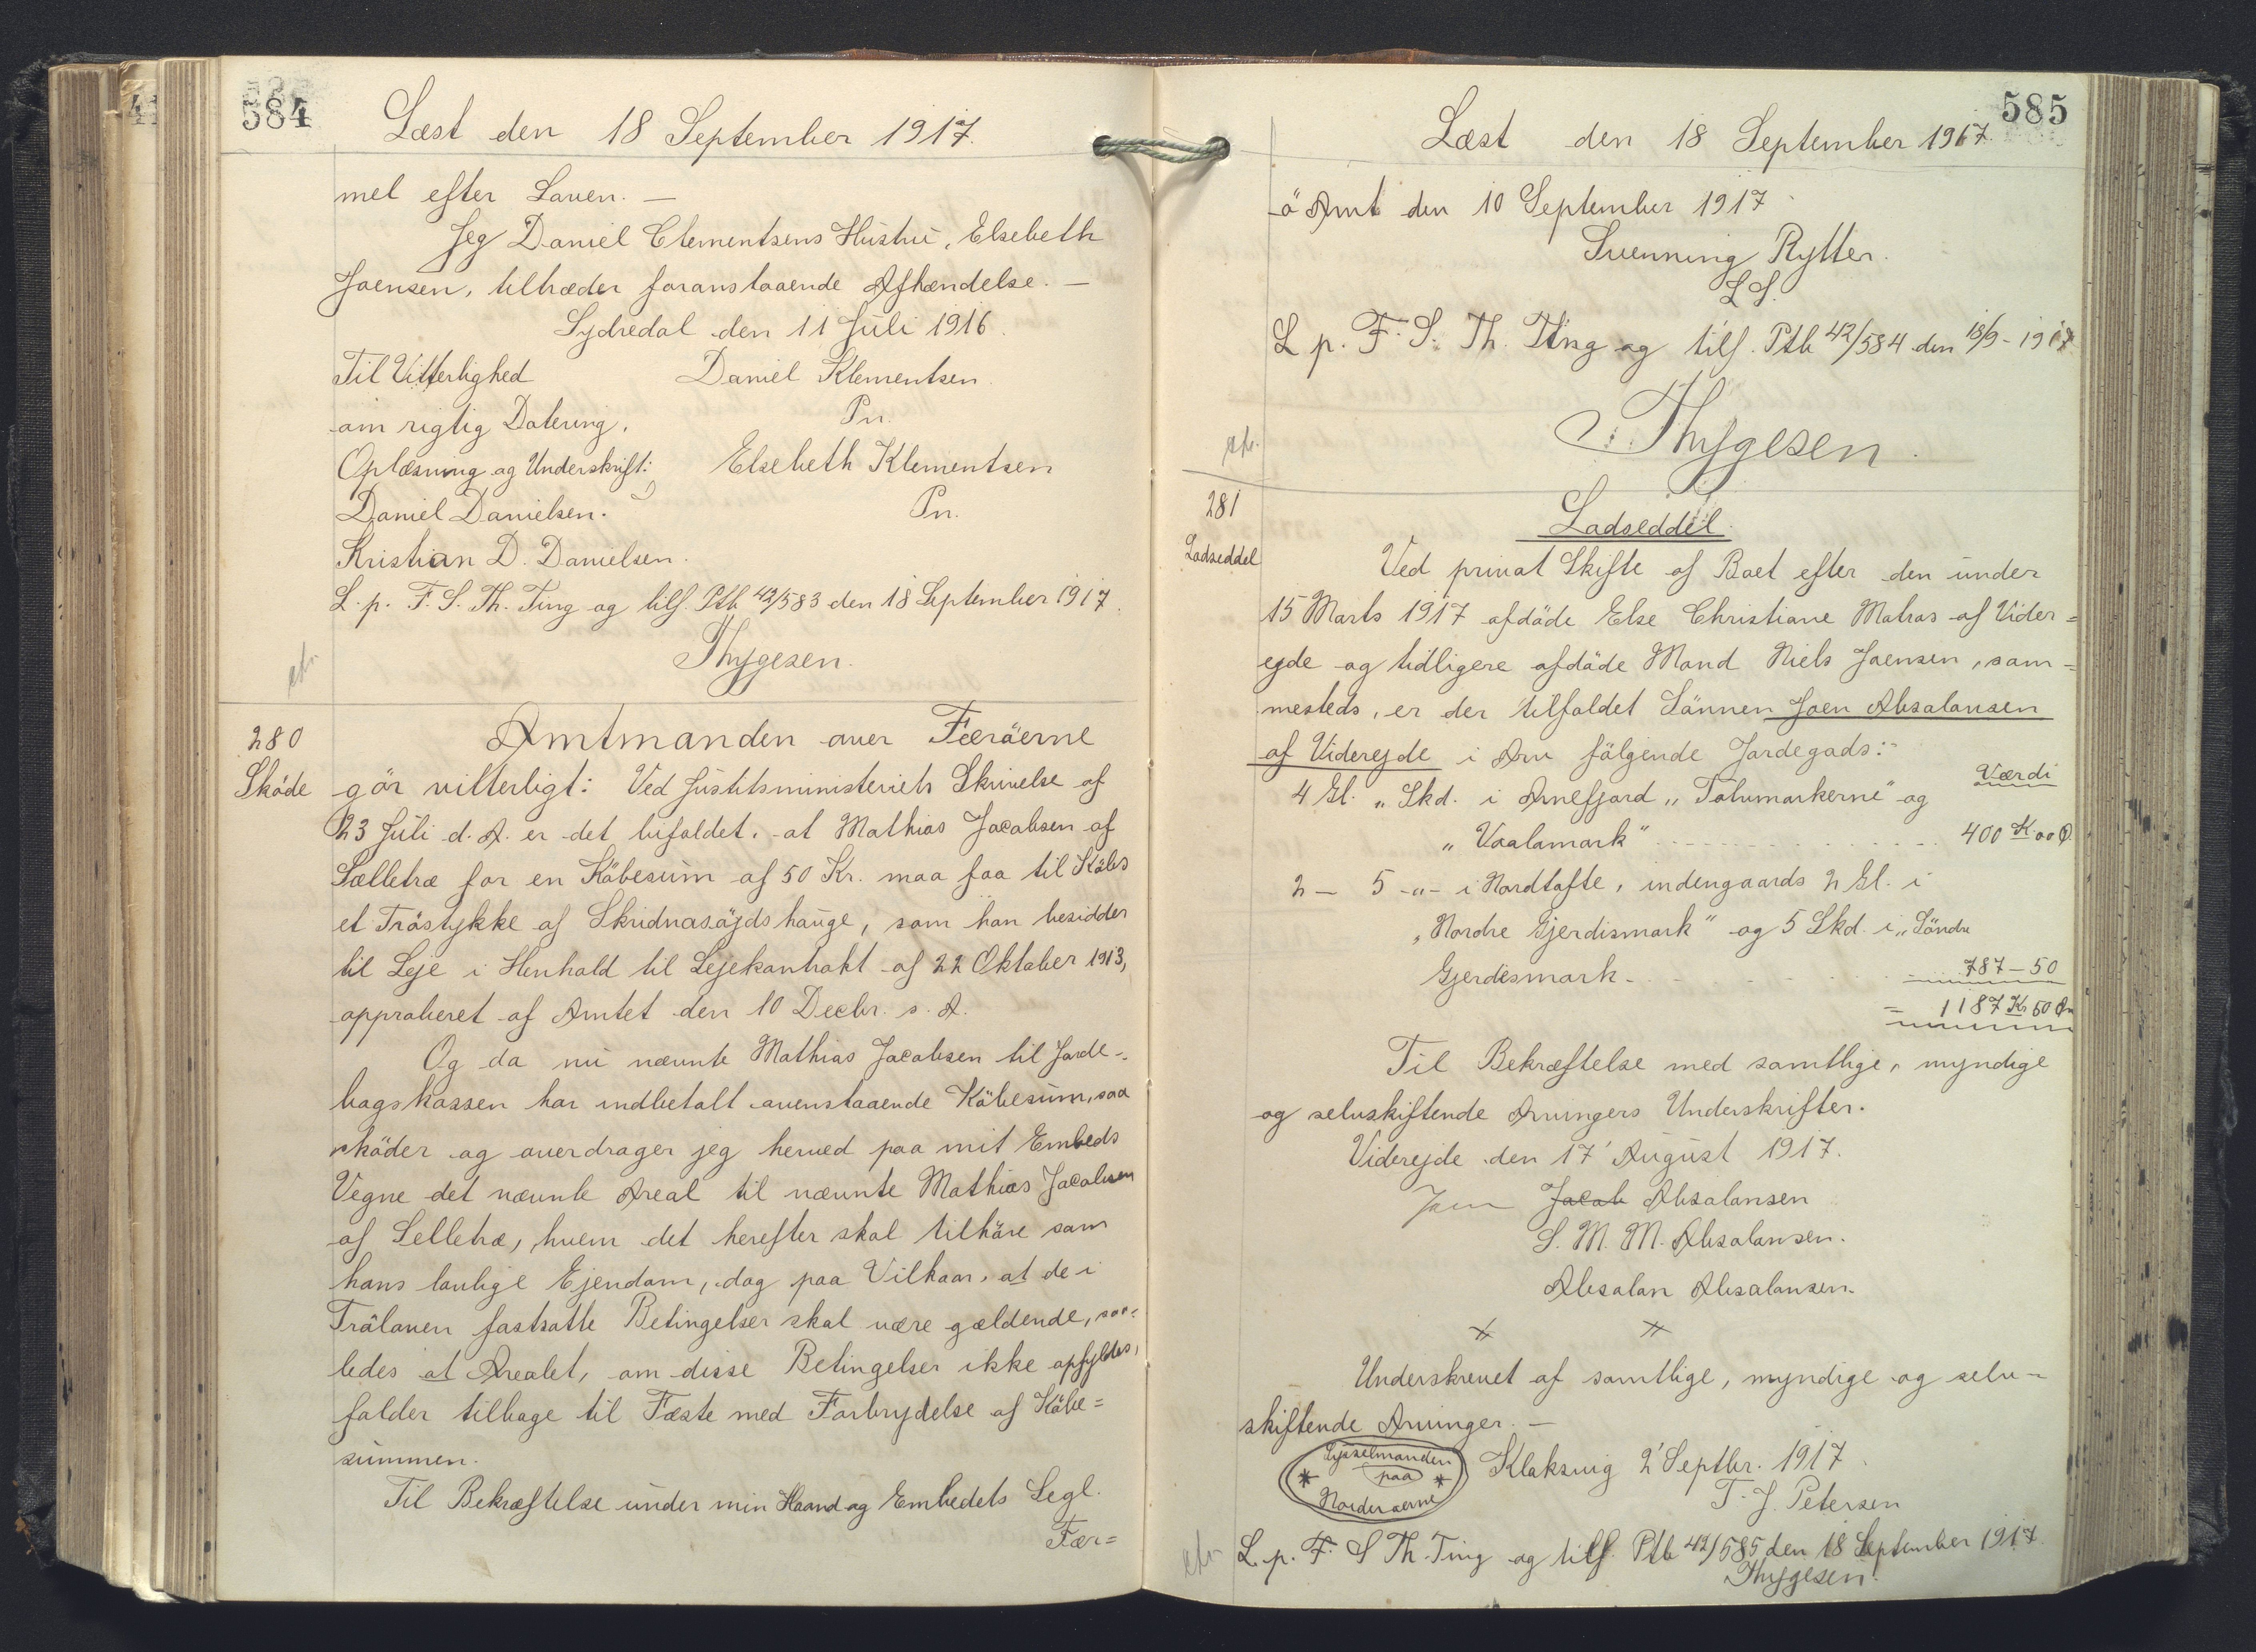 584
Læst den 18 September 1917.
mel efter Loven. —
Jeg Daniel Clementsens Hustru, Elsebeth
Joensen, tiltræder foranstaaende Afhændelse. —
Sydredal den 11 Juli 1916.
Til Vitterlighed Daniel Klementsen.
om rigtig Datering, Pn.
Oplæsning og Underskrift: Elsebeth Klementsen
Daniel Danielsen. Pn.
Kristian D. Danielsen.
L. p. F. S. Th. Ting og tilf. Ptb 42/583 den 18 September 1917.
Thygesen.
280 Amtmanden over Færöerne
Sköde gör vitterligt: Ved Justitsministeriets Skrivelse af
23 Juli d. A. er det bifaldet, at Mathias Jacobsen af
Sælletræ for en Köbesum af 50 Kr. maa faa til Köbs
et Tröstykke af Skridnasöjdshauge, som han besidder
til Leje i Henhold til Lejekontrakt af 22 Oktober 1913,
approberet af Amtet den 10 Decbr. s. A.
Og da nu nævnte Mathias Jacobsen til Jorde-
bogskassen har indbetalt ovenstaaende Köbesum, saa
sköder og overdrager jeg herved paa mit Embeds
Vegne det nævnte Areal til nævnte Mathias Jacobsen
af Selletræ, hvem det herefter skal tilhöre som
hans lovlige Ejendom, dog paa Vilkaar, at de i
Tröloven fastsatte Betingelser skal være gældende, saa-
ledes at Arealet, om disse Betingelser ikke opfyldes,
falder tilbage til Fæste med Forbrydelse af Köbe=
summen.
Til Bekræftelse under min Haand og Embedets Segl.
Fær=
585
Læst den 18 September 1917.
ö Amt den 10 September 1917
Svenning Rytter.
L S.
L p. F. S. Th. Ting og tilf. Ptb 42/584 den 18/9 - 1917
Thygesen.
281
Lodseddel
Lodseddel.
Ved privat Skifte af Boet efter den under
15 Marts 1917 afdöde Else Christiane Matras af Vider=
ejde og tidligere afdöde Mand Niels Joensen, sam=
mesteds, er der tilfaldet Sönnen Joen Absalonsen
af Viderejde i Arv fölgende Jordegods:
Værdi
4 Gl. „ Skd. i Arnefjord „Tolvmarkerne" og
„Vaalamark" 400 K 00 Ø.
2 — 5 -"- i Nordtofte, indengaards 2 Gl. i
„Nordre Gjerdismark" og 5 Skd. i „Söndre
Gjerdismark 787 — 50
= 1187 Kr 50 Ør
Til Bekræftelse med samtlige, myndige
og selvskiftende Arvingers Underskrifter.
Viderejde den 17' August 1917.
Joen Jacob Absalonsen
S. M. M. Absalonsen.
Absalon Absalonsen.
Underskrevet af samtlige, myndige og selv-
skiftende Arvinger. —
Sysselmanden
paa
Norderoerne
Klaksvig 2' Septbr. 1917.
T. J. Petersen
L. p. F. S Th. Ting og tilf. Ptb 42/585 den 18 September 1917.
Thygesen.